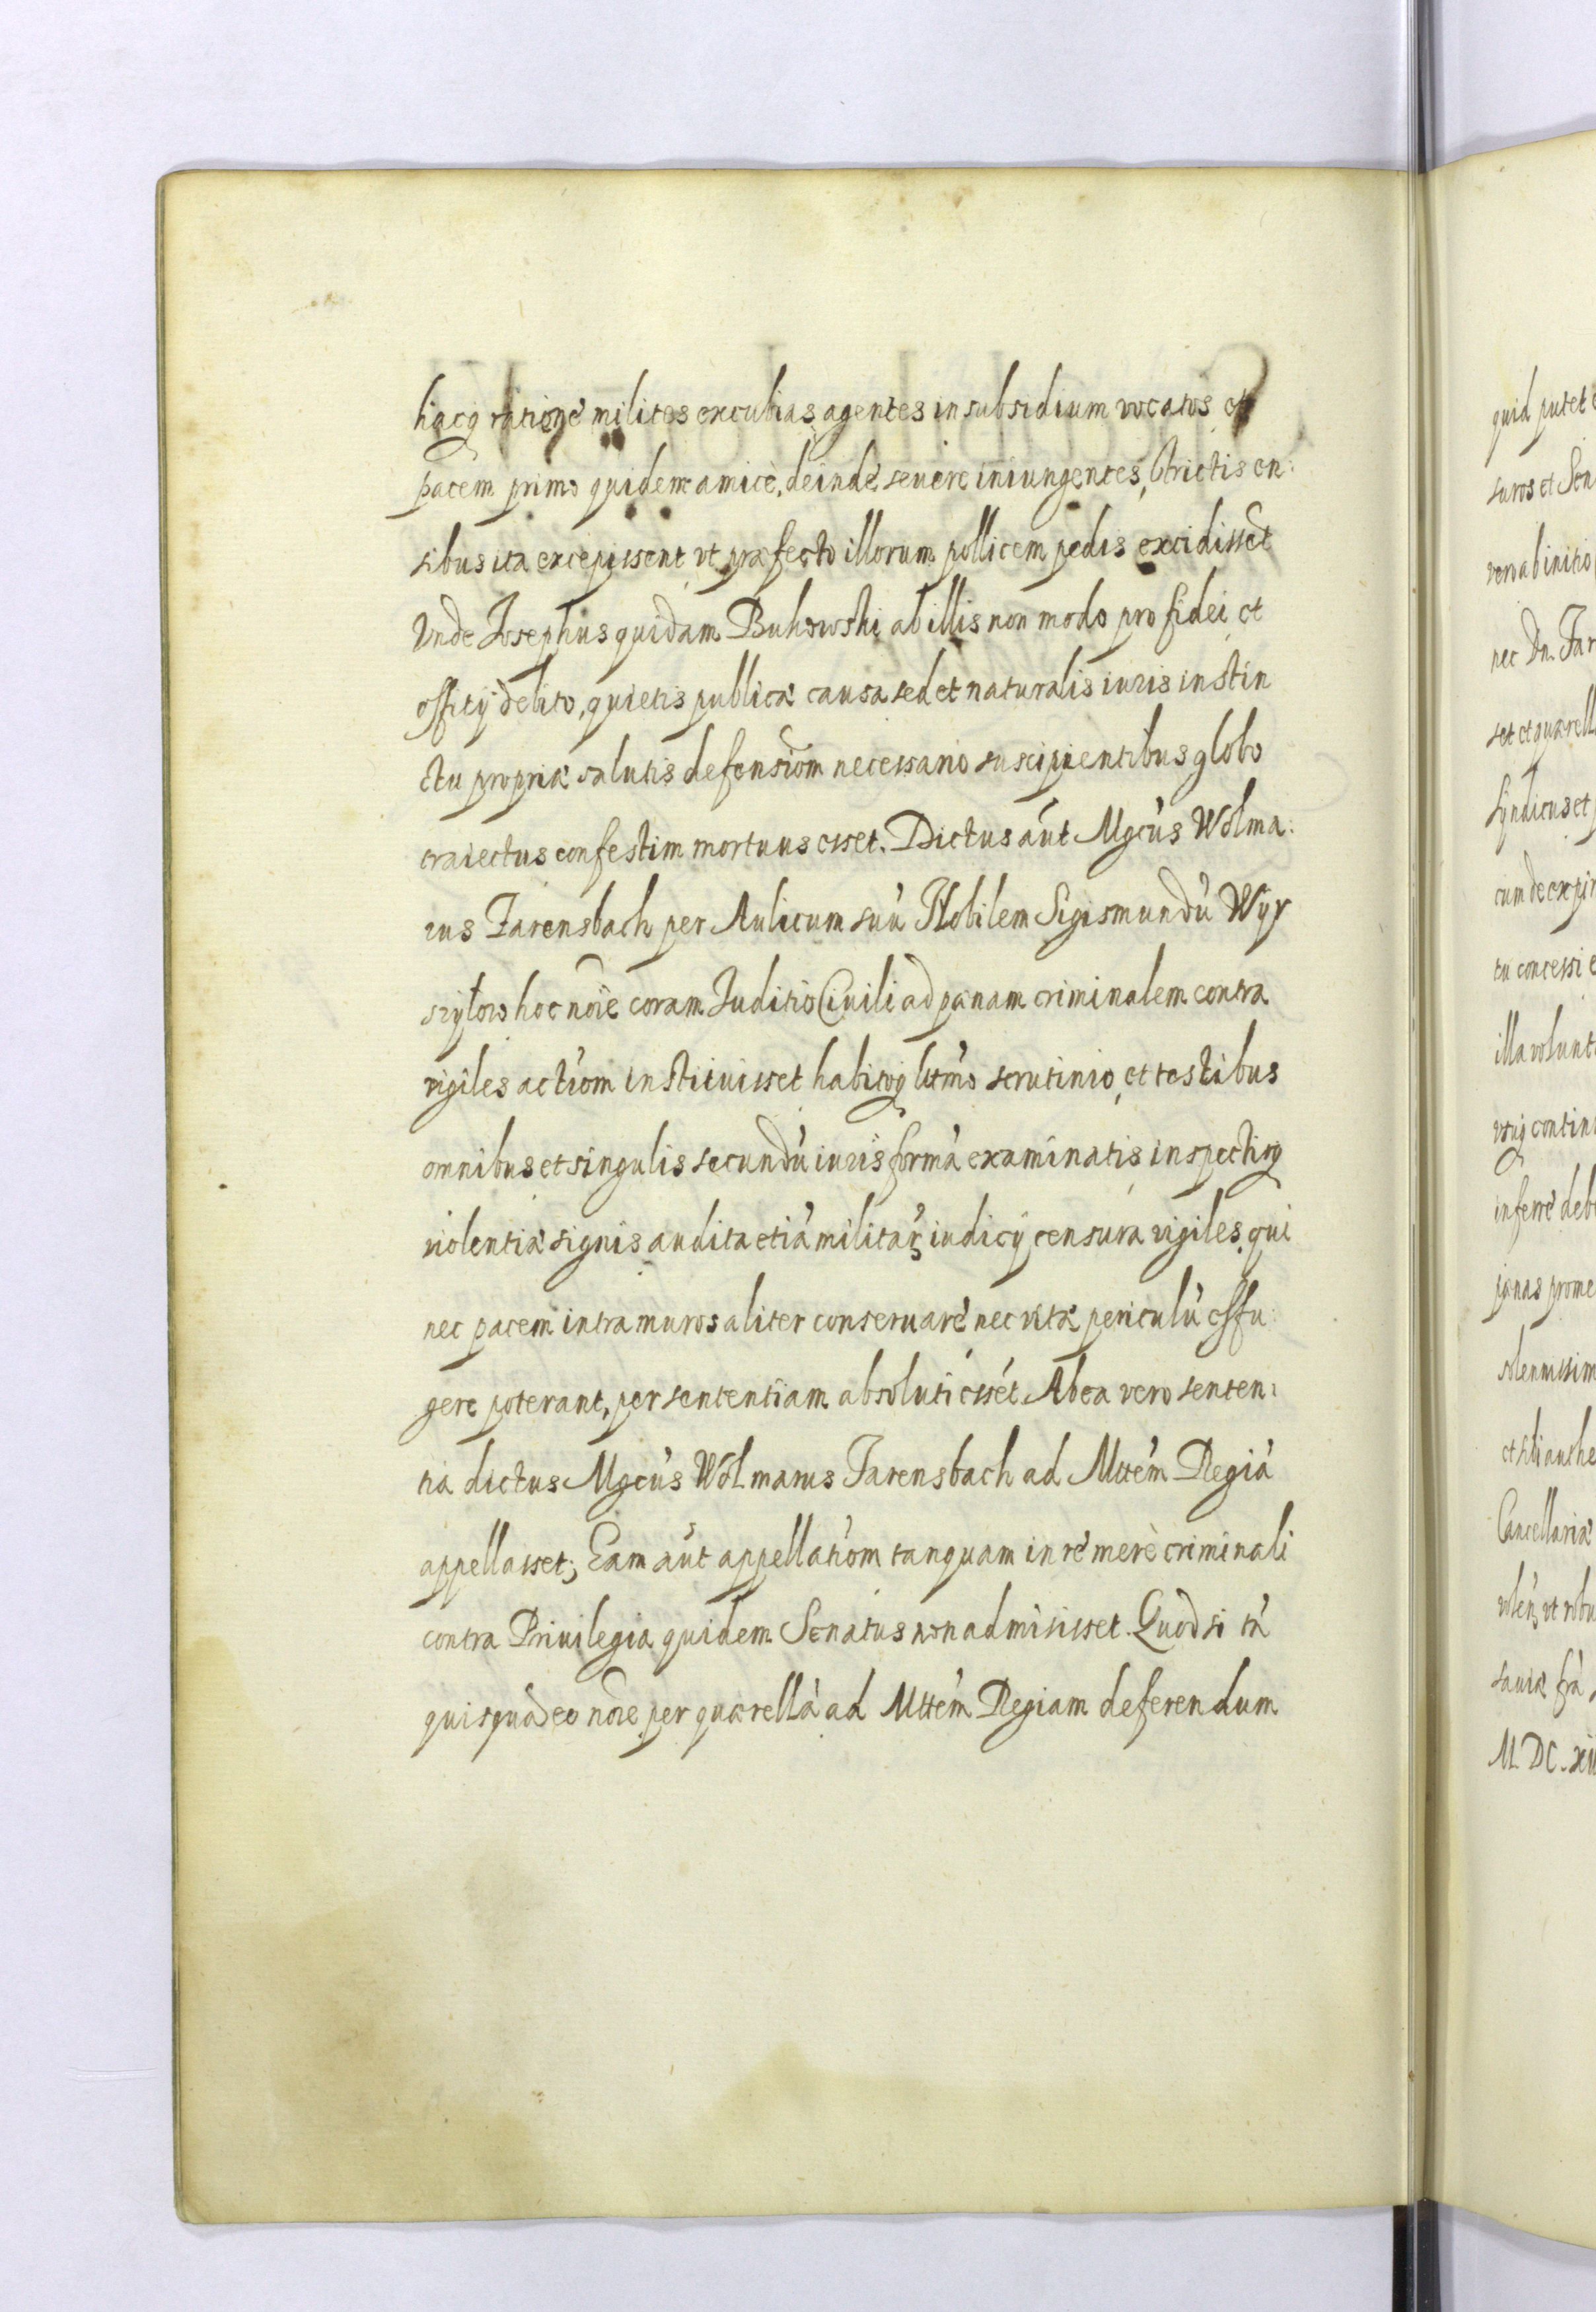 hacq ratione milites excubias agentes in subsidium vocatos et
pacem primo quidem amicè, deinde seuere iniungentes, strictis en:
sibus ita excepissent vt præfecto illorum pollicem pedis excidisset
Vnde Josephus quidam Bukowski ab illis non modo pro fidei et
offitij debito, quietis publicæ causa sed et naturalis iuris instin
ctu propriæ salutis defensiom necessario suscipientibus globo
traiectus confestim mortuus esset. Dictus aút Mgcús Wolma:
rus Farensbach per Aulicum suú Nobilem Sigismundú Wyr
szylow hoc noie coram Juditio Ciuili ad pænam criminalem contra
vigiles actiom instituisset habitoq lttmo scrutinio, et testibus
omnibus et singulis secundú iuris formá examinatis inspectisq
violentiæ signis audita etiá militar iudicij censura vigiles, qui
nec pacem intra muros aliter conseruare nec vitæ periculú effu:
gere poterant, per sententiam absoluti essét Ab ea vero senten:
tia dictus Mgcús Wolmarus Farensbach ad Mttém Regiá
appellasset; Eam aút appellatiom tanquam in re merè criminali
contra Priuilegia quidem Senatus non admisisset. Quod si tá
quisquá deo noie per quærellá ad Mttém Regiam deferendum
quid putet
suros et Sen
vero ab initio
nec Dn. Far
set et quærell
Syndicus et
cum de
tu concessi
illa volunt
vtuq contin
inferre deb
pænas prome
solennissim
et sibi authe
Cancellariæ
vt robu
M. DC.